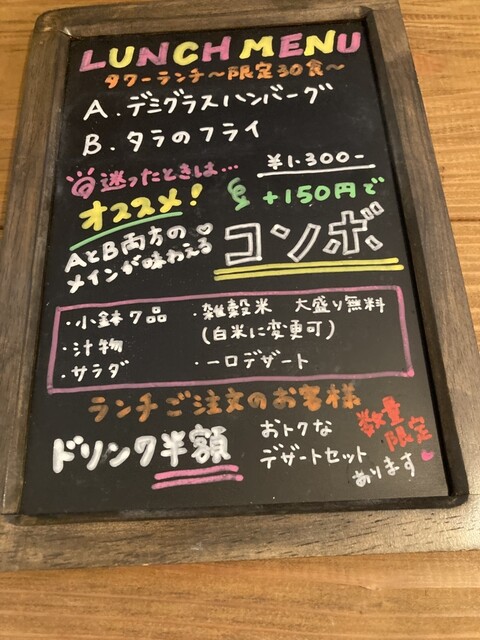 LUNCH MENU
タワーランチ～限定30食～
A.デミグラスハンバーグ
B.タラのフライ
¥1.300-
迷ったときは…
オススメ!
+150円で
AとB両方の♡
メインが味わえる
コンボ
・小鉢7品
・汁物
・サラダ
・雑穀米 大盛り無料
(白米に変更可)
・一口デザート
ランチご注文のお客様
ドリンク半額
おトクな
デザートセット
あります
数量
限定